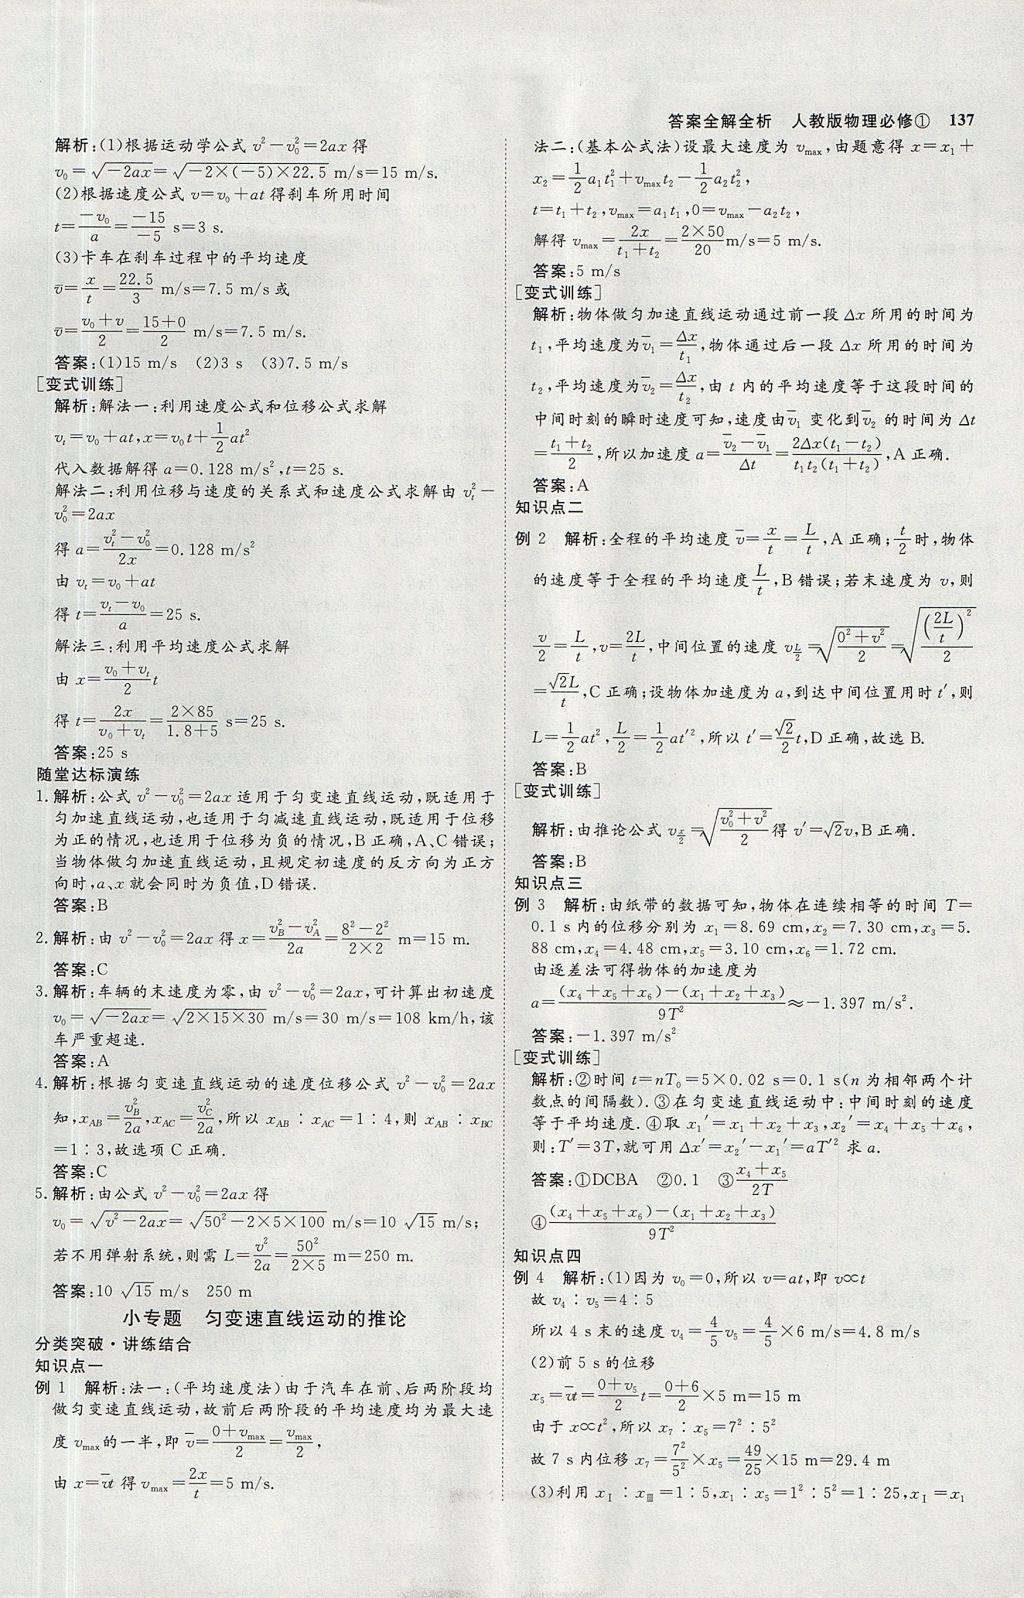 答案全解全析　人教版物理必修①　137
解析:(1)根据运动学公式 v²－v₀²＝2ax 得
v₀＝√(－2ax)＝√(－2×(－5)×22.5) m/s＝15 m/s.
(2)根据速度公式 v＝v₀＋at 得刹车所用时间
t＝(－v₀)/a＝(－15)/(－5) s＝3 s.
(3)卡车在刹车过程中的平均速度
v̄＝x/t＝22.5/3 m/s＝7.5 m/s或
v̄＝(v₀＋v)/2＝(15＋0)/2 m/s＝7.5 m/s.
答案:(1)15 m/s　(2)3 s　(3)7.5 m/s
[变式训练]
解析:解法一:利用速度公式和位移公式求解
vₜ＝v₀＋at,x＝v₀t＋1/2 at²
代入数据解得 a＝0.128 m/s²,t＝25 s.
解法二:利用位移与速度的关系式和速度公式求解由 vₜ²－
v₀²＝2ax
得 a＝(vₜ²－v₀²)/2x＝0.128 m/s²
由 vₜ＝v₀＋at
得 t＝(vₜ－v₀)/a＝25 s.
解法三:利用平均速度公式求解
由 x＝(v₀＋vₜ)/2 t
得 t＝2x/(v₀＋vₜ)＝(2×85)/(1.8＋5) s＝25 s.
答案:25 s
随堂达标演练
1. 解析:公式 v²－v₀²＝2ax 适用于匀变速直线运动,既适用于
匀加速直线运动,也适用于匀减速直线运动,既适用于位移
为正的情况,也适用于位移为负的情况,B正确,A、C错误;
当物体做匀加速直线运动,且规定初速度的反方向为正方
向时,a、x 就会同时为负值,D错误.
答案:B
2. 解析:由 v²－v₀²＝2ax 得 x＝(v_B²－v_A²)/2a＝(8²－2²)/(2×2) m＝15 m.
答案:C
3. 解析:车辆的末速度为零,由 v²－v₀²＝2ax,可计算出初速度
v₀＝√(－2ax)＝√(2×15×30) m/s＝30 m/s＝108 km/h,该
车严重超速.
答案:A
4. 解析:根据匀变速直线运动的速度位移公式 v²－v₀²＝2ax
知,x_AB＝v_B²/2a,x_AC＝v_C²/2a,所以 x_AB∶x_AC＝1∶4,则 x_AB∶x_BC
＝1∶3,故选项C正确.
答案:C
5. 解析:由公式 v²－v₀²＝2ax 得
v₀＝√(v²－2ax)＝√(50²－2×5×100) m/s＝10√15 m/s;
若不用弹射系统,则需 L＝v²/2a＝50²/(2×5) m＝250 m.
答案:10√15 m/s　250 m
小专题　匀变速直线运动的推论
分类突破·讲练结合
知识点一
例 1　解析:法一:(平均速度法)由于汽车在前、后两阶段均
做匀变速直线运动,故前后两阶段的平均速度均为最大速
度 v_max 的一半,即 v̄＝(0＋v_max)/2＝v_max/2,
由 x＝v̄t 得 v_max＝2x/t＝5 m/s.
法二:(基本公式法)设最大速度为 v_max,由题意得 x＝x₁＋
x₂＝1/2 a₁t₁²＋v_max t₂－1/2 a₂t₂²,
t＝t₁＋t₂,v_max＝a₁t₁,0＝v_max－a₂t₂,
解得 v_max＝2x/(t₁＋t₂)＝(2×50)/20 m/s＝5 m/s.
答案:5 m/s
[变式训练]
解析:物体做匀加速直线运动通过前一段 Δx 所用的时间为
t₁,平均速度为 v̄₁＝Δx/t₁,物体通过后一段 Δx 所用的时间为
t₂,平均速度为 v̄₂＝Δx/t₂,由 t 内的平均速度等于这段时间的
中间时刻的瞬时速度可知,速度由 v̄₁ 变化到 v̄₂ 的时间为 Δt
＝(t₁＋t₂)/2,所以加速度 a＝(v̄₂－v̄₁)/Δt＝2Δx(t₁－t₂)/(t₁t₂(t₁＋t₂)),A正确.
答案:A
知识点二
例 2　解析:全程的平均速度 v̄＝x/t＝L/t,A正确;t/2时,物体
的速度等于全程的平均速度 L/t,B错误;若末速度为 v,则
v/2＝L/t,v＝2L/t,中间位置的速度 v_(L/2)＝√((0²＋v²)/2)＝√((2L/t)²/2)
＝√2L/t,C正确;设物体加速度为 a,到达中间位置用时 t′,则
L＝1/2 at²,L/2＝1/2 at′²,所以 t′＝√2/2 t,D正确,故选B.
答案:B
[变式训练]
解析:由推论公式 v_(x/2)＝√((v₀²＋v²)/2)得 v′＝√2v,B正确.
答案:B
知识点三
例 3　解析:由纸带的数据可知,物体在连续相等的时间 T＝
0.1 s内的位移分别为 x₁＝8.69 cm,x₂＝7.30 cm,x₃＝5.
88 cm,x₄＝4.48 cm,x₅＝3.10 cm,x₆＝1.72 cm.
由逐差法可得物体的加速度为
a＝((x₄＋x₅＋x₆)－(x₁＋x₂＋x₃))/9T²≈－1.397 m/s².
答案:－1.397 m/s²
[变式训练]
解析:②时间 t＝nT₀＝5×0.02 s＝0.1 s(n 为相邻两个计
数点的间隔数).③在匀变速直线运动中:中间时刻的速度
等于平均速度.④取 x₁′＝x₁＋x₂＋x₃,x₂′＝x₄＋x₅＋x₆,
则:T′＝3T,就可用 Δx′＝x₂′－x₁′＝aT′² 求 a.
答案:①DCBA　②0.1　③(x₄＋x₅)/2T
④((x₄＋x₅＋x₆)－(x₁＋x₂＋x₃))/9T²
知识点四
例 4　解析:(1)因为 v₀＝0,所以 v＝at,即 v∝t
故 v₄∶v₅＝4∶5
所以 4 s末的速度 v₄＝4/5 v₅＝4/5×6 m/s＝4.8 m/s
(2)前 5 s的位移
x₅＝v̄t＝(0＋v₅)/2 t＝(0＋6)/2×5 m＝15 m
由于 x∝t²,所以 x₇∶x₅＝7²∶5²
故 7 s内位移 x₇＝7²/5²×x₅＝49/25×15 m＝29.4 m
(3)利用 xⅠ∶xⅢ＝1∶5,x₁∶x₅＝1²∶5²＝1∶25,xⅠ＝x₁